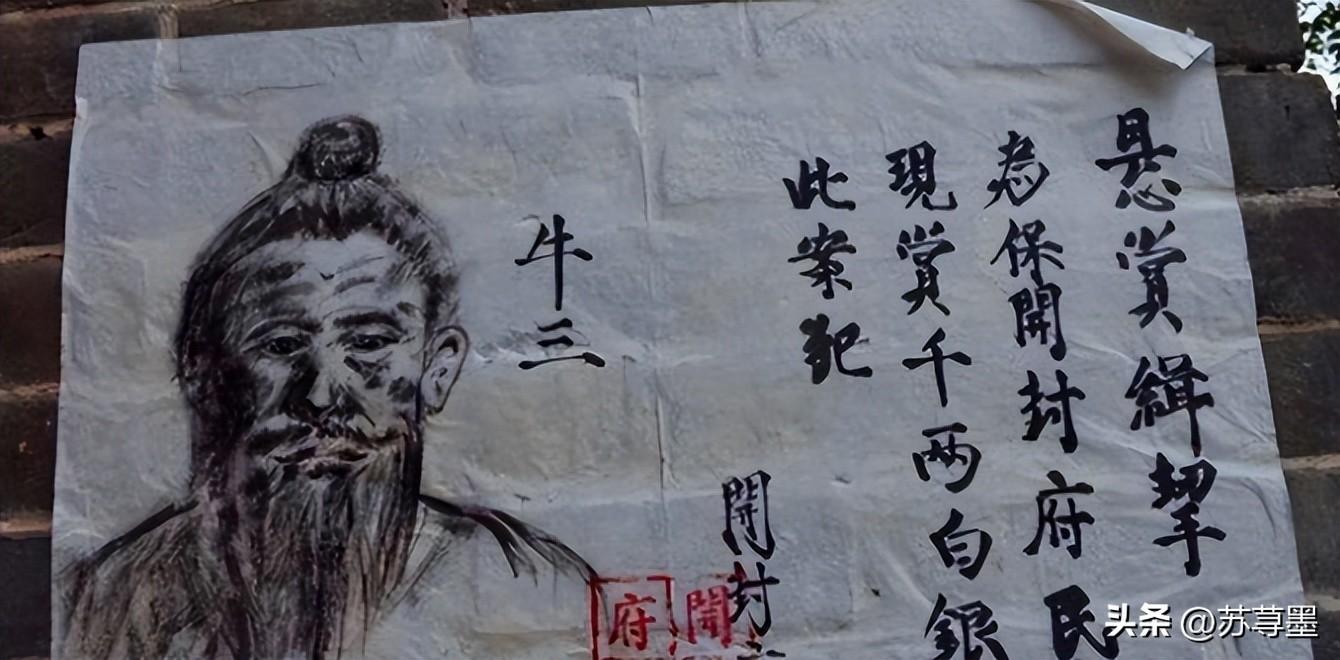 悬賞緝挈
為保開封府民
現賞千两白銀
此案犯
開封
牛三
開府
头条 @苏荨墨